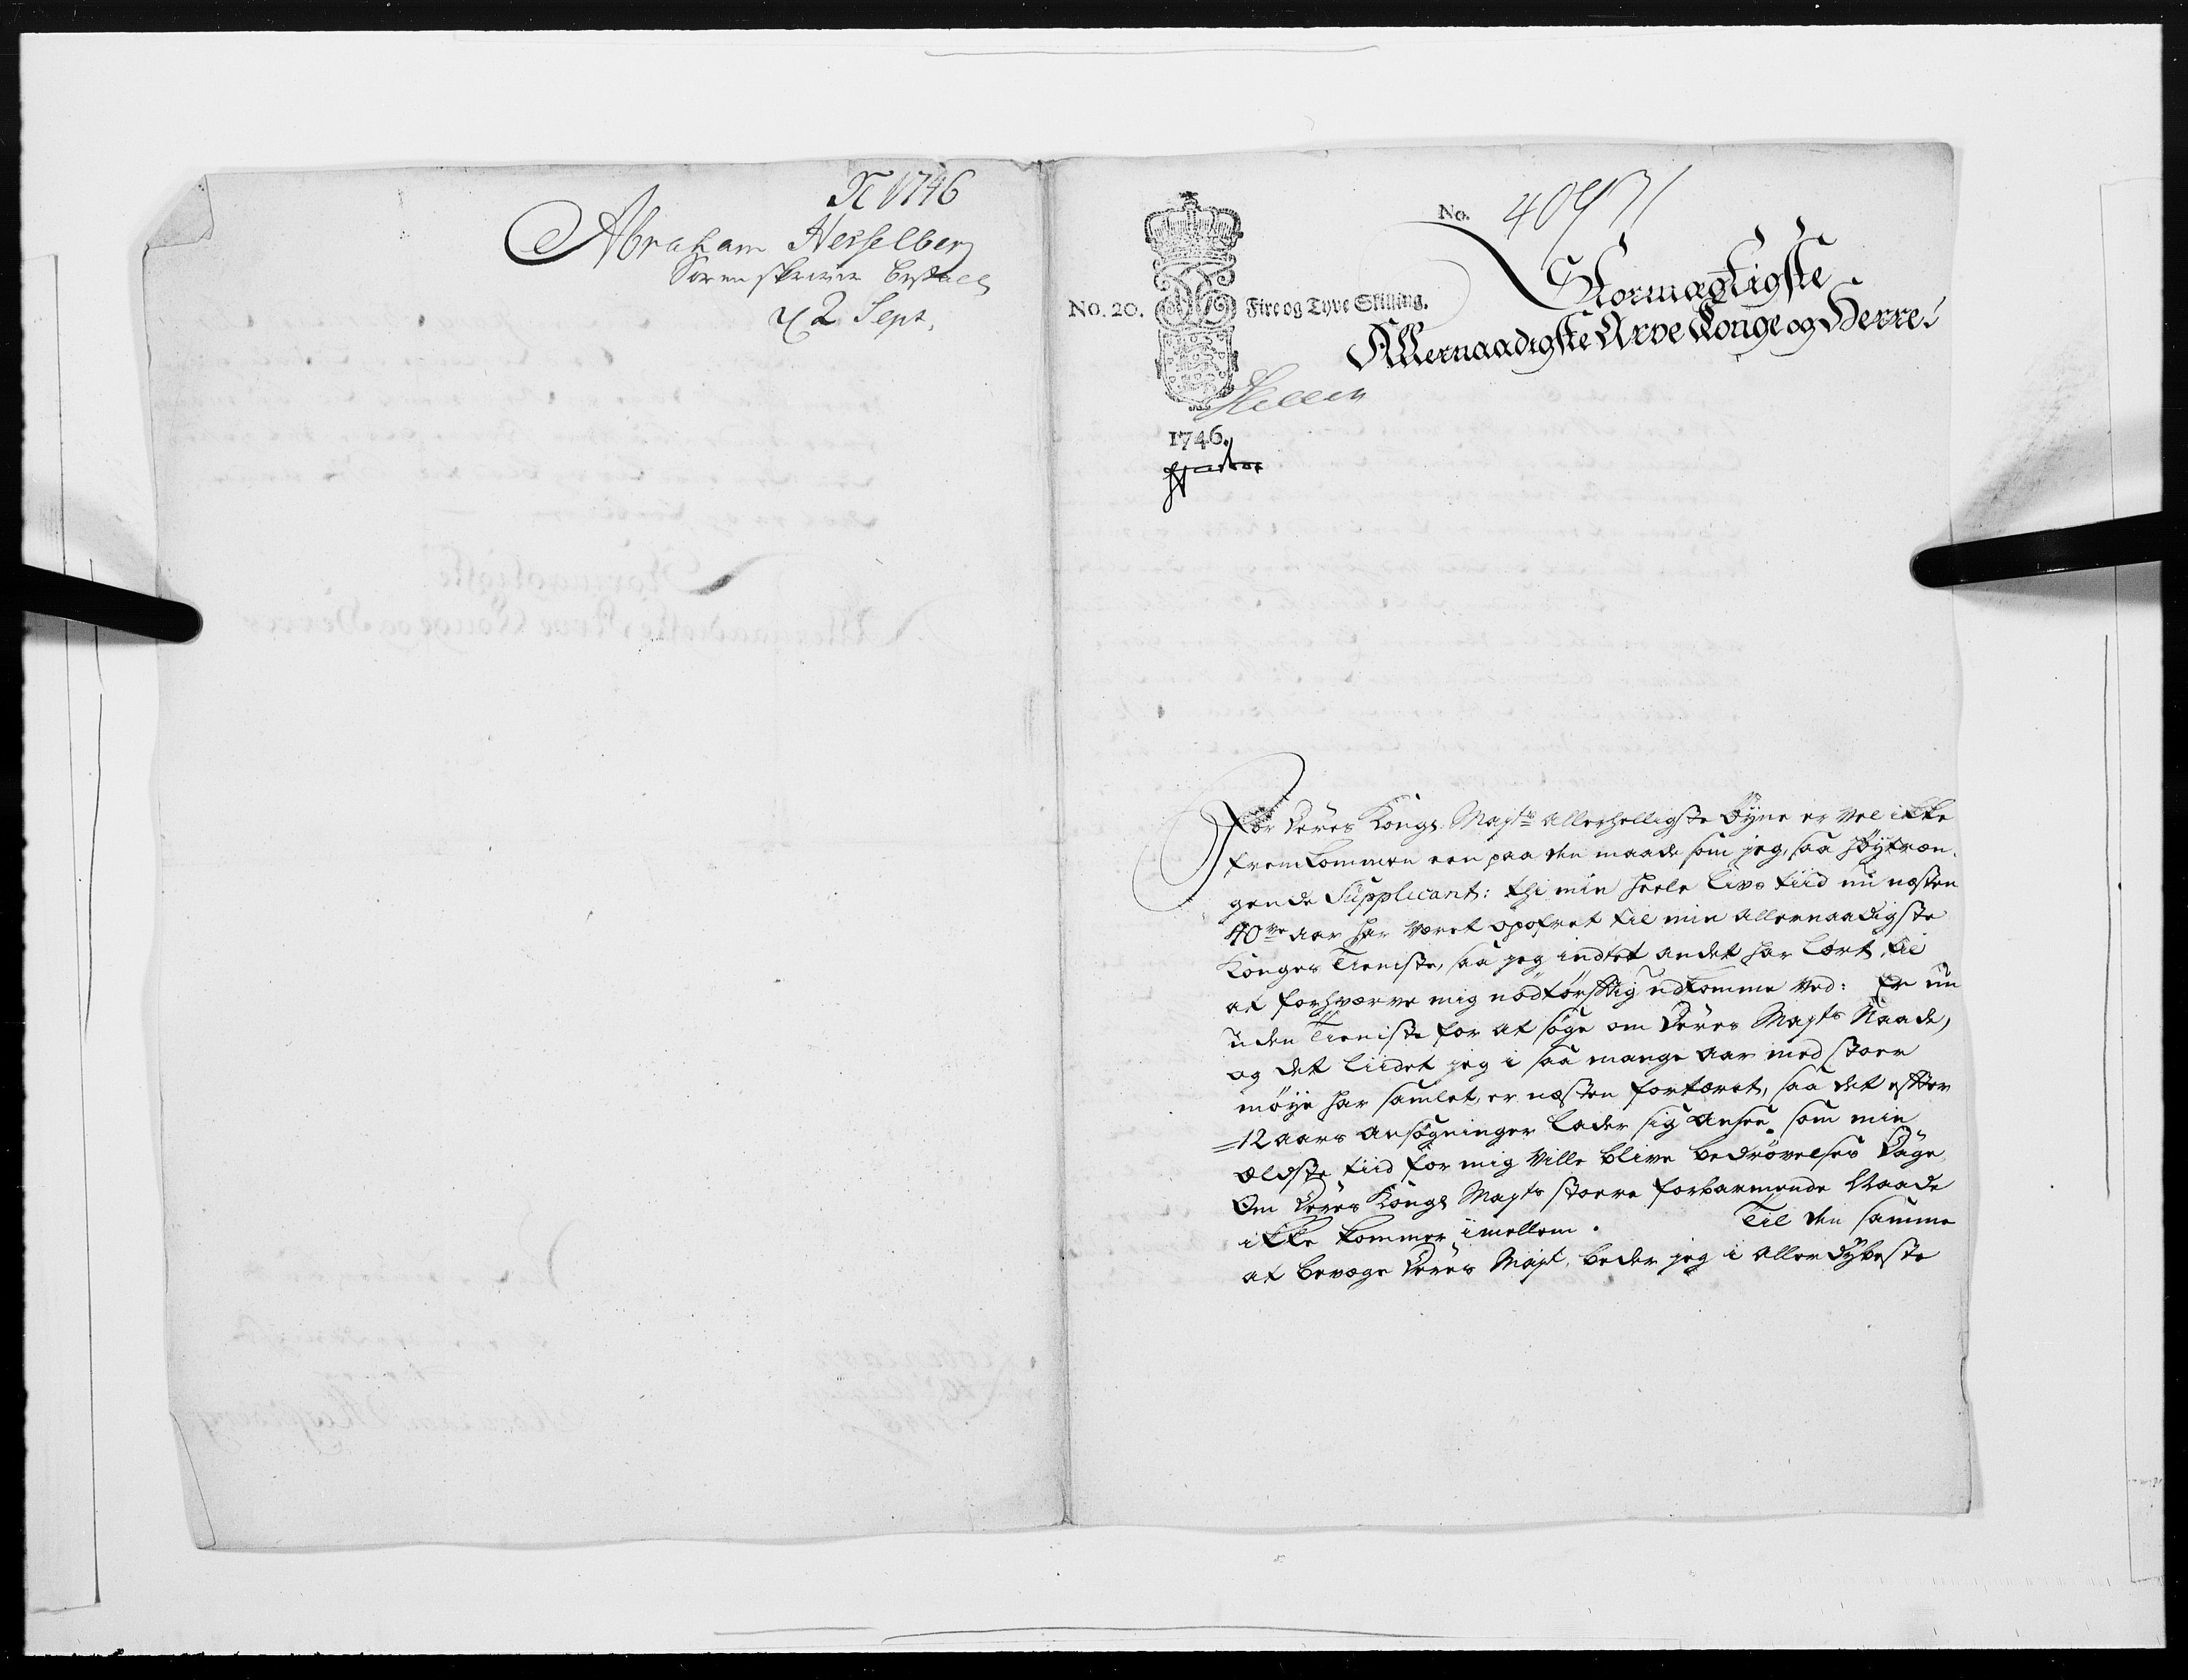 1746
Abraham Hesselberg
Sorenskriver Bestall
2 Sept.
No.
No. 20. Fire og Tyve Skilling.
1746.
Stormægtigste
Allernaadigste Arve Konge og Herre!
For Deres Kongl. Maj:ts Allerhelligste Øyne er vel ikke
fremkommen een paa den maade som jeg, saa høytræn-
gende Supplicant: thi min heele Livs tiid nu næsten
40ve aar har været opofret til min Allernaadigste
Konges Tieniste, saa jeg indtet andet har lært, til
at forhværve mig nødtørfftig udkomme ved: Er nu
uden Tieniste for at søge om Deres Mayts Naade,
og det liidet jeg i saa mange aar med stoer
møye har samlet, er næsten fortæret, saa det effter
12 aars ansøgninger lader sig ansee, som min
ældste tiid for mig ville blive bedrøvelses Dage,
Om Deres Kongl Mayts stoere forbarmende Naade
ikke kommer imellem. Til den samme
at bevæge Deres Mayt, beder jeg i aller dybeste